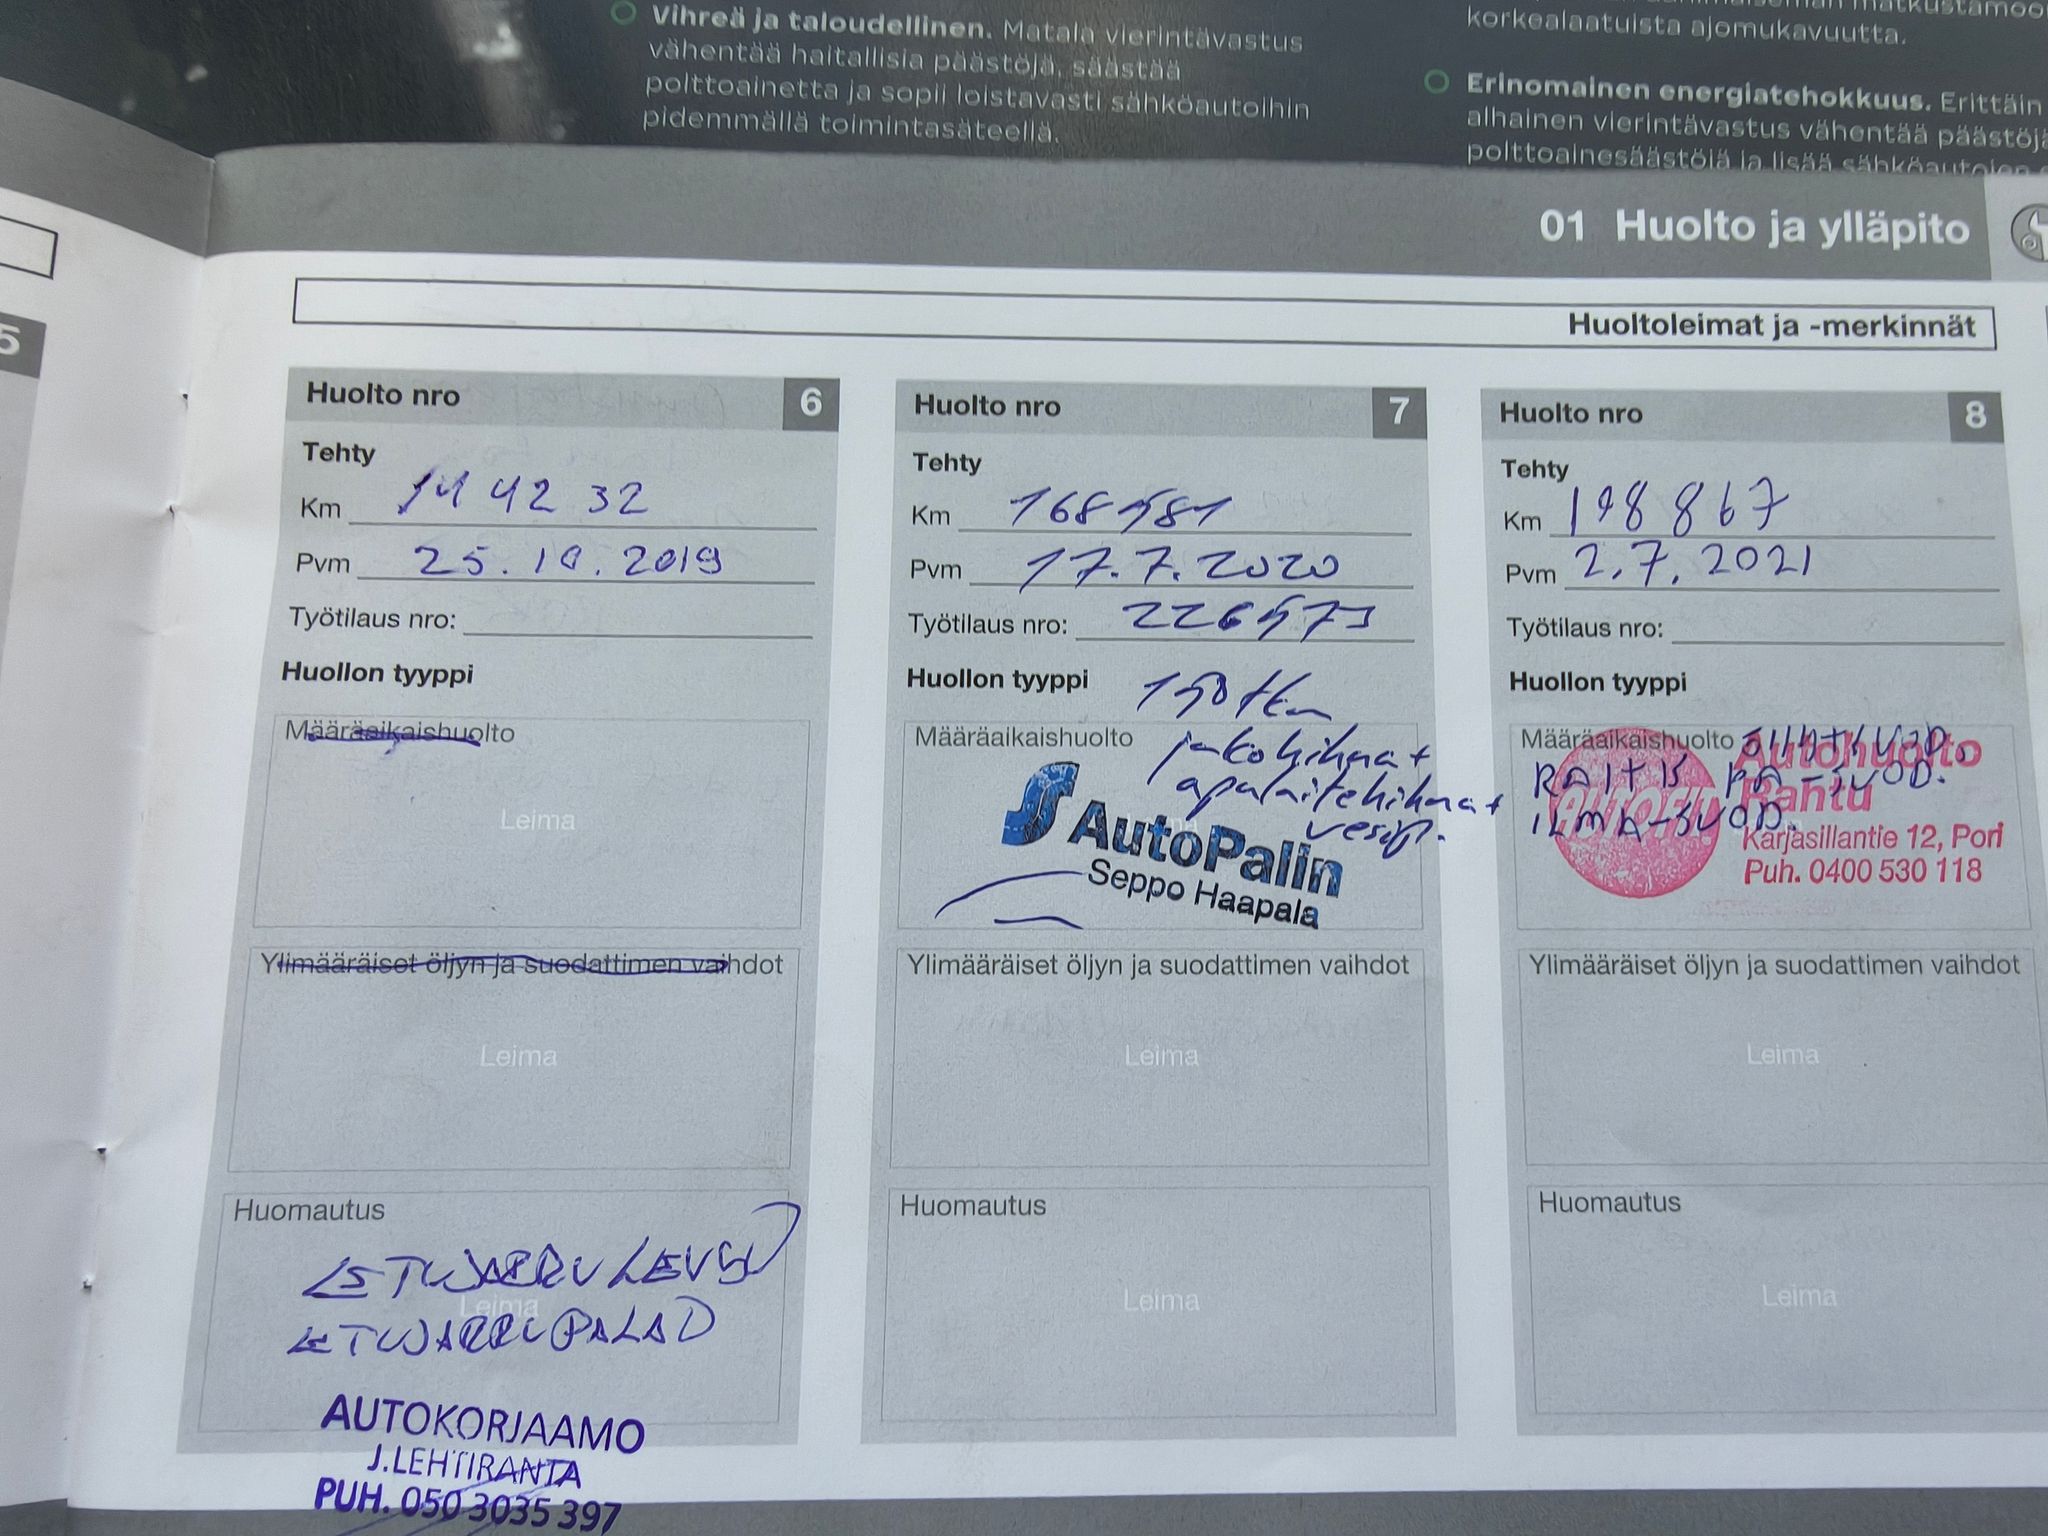 Vihreä ja taloudellinen. Matala vierintävastus
vähentää haitallisia päästöjä, säästää
polttoainetta ja sopii loistavasti sähköautoihin
pidemmällä toimintasäteellä.
korkealaatuista ajomukavuutta.
Erinomainen energiatehokkuus. Erittäin
alhainen vierintävastus vähentää
polttoainesäästöjä ja lisää sähköautojen
01 Huolto ja ylläpito
Huoltoleimat ja -merkinnät
5
Huolto nro 6
Tehty
Km 144232
Pvm 25.10.2019
Työtilaus nro:
Huollon tyyppi
Määräaikaishuolto
Leima
Ylimääräiset öljyn ja suodattimen vaihdot
Leima
Huomautus
ETUJARRU LEVYT
Leima
ETUJARRUPALAT
AUTOKORJAAMO
J.LEHTIRANTA
PUH. 050 3035 397
Huolto nro 7
Tehty
Km
Pvm 17.7.2020
Työtilaus nro:
Huollon tyyppi
Määräaikaishuolto jakohihna+
apulaitehihna+
vesip.
AutoPalin
Seppo Haapala
Ylimääräiset öljyn ja suodattimen vaihdot
Leima
Huomautus
Leima
Huolto nro 8
Tehty
Km 198867
Pvm 2.7.2021
Työtilaus nro:
Huollon tyyppi
Määräaikaishuolto
Autohuolto
Rantu
AUTOFIT
ILMA-SUOD.
Karjasillantie 12, Pori
Puh. 0400 530 118
Ylimääräiset öljyn ja suodattimen vaihdot
Leima
Huomautus
Leima